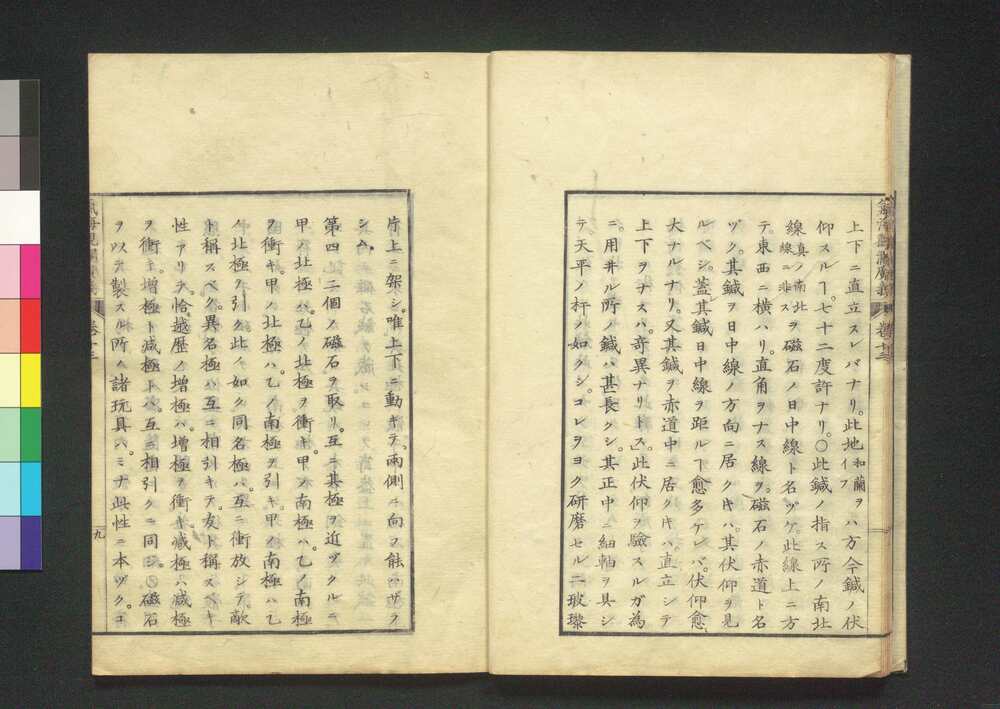 上下ニ直立スレバナリ。此地和蘭ヲイフハ方今鍼ノ伏
仰スルヿ七十二度許ナリ。〇此鍼ノ指ス所ノ南北
線真ノ南北線ニ非スヲ磁石ノ日中線ト名ヅケ此線上ニ方
テ東西ニ横ハリ。直角ヲナス線ヲ。磁石ノ赤道ト名
ヅク。其鍼ヲ日中線ノ方向ニ居クキハ。其伏仰ヲ見
ルベシ。蓋其鍼日中線ヲ距ルヿ愈多ケレバ。伏仰愈
大ナルナリ。又其鍼ヲ赤道中ニ居クキハ。直立シテ
上下ヲナスハ。奇異ナリトス」此伏仰ヲ驗スルガ為
ニ。用井ル所ノ鍼ハ甚長クシ。其正中ニ細軸ヲ具シ
テ。天平ノ杆ノ如クシ。コレヲヨク研磨セル二玻瓈
片上ニ架シ。唯上下ニ動キテ。兩側ニ向フ能ハザラ
シム
第四 二個ノ磁石ヲ取リ。互ニ其極ヲ近ヅクルニ
甲ノ北極ハ。乙ノ北極ヲ衝キ。甲ノ南極ハ。乙ノ南極
ヲ衝キ。甲ノ北極ハ。乙ノ南極ヲ引キ。甲ノ南極ハ乙
ノ北極ヲ引ク此ノ如ク同名極ハ。互ニ衝放シテ敵
ト稱スベク。異名極ハ互ニ相引キテ。友ト稱スベキ
性アリテ。恰越歴ノ増極ハ。増極ヲ衝キ。減極ハ減極
ヲ衝キ。増極ト減極トハ。互ニ相引クニ同シ。〇磁石
ヲ以テ製スル所ノ諸玩具ハ。ミナ此性ニ本ヅク。コ
卷十三
九